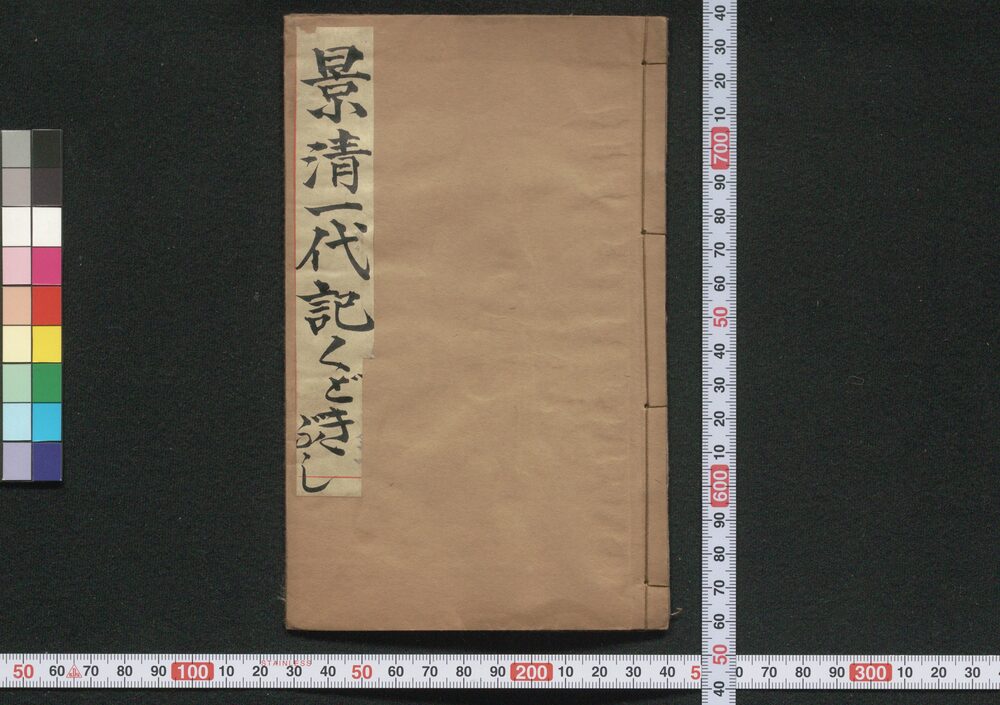 景清一代記くどきぶし
40 30 20 10 700 90 80 70 60 50 40 30 20 10 600 90 80 70 60 50 40
50 60 70 80 90 100 10 20 30 40 50 60 70 80 90 200 10 20 30 40 5 70 80 90 300 10 20 30
STAINLESS